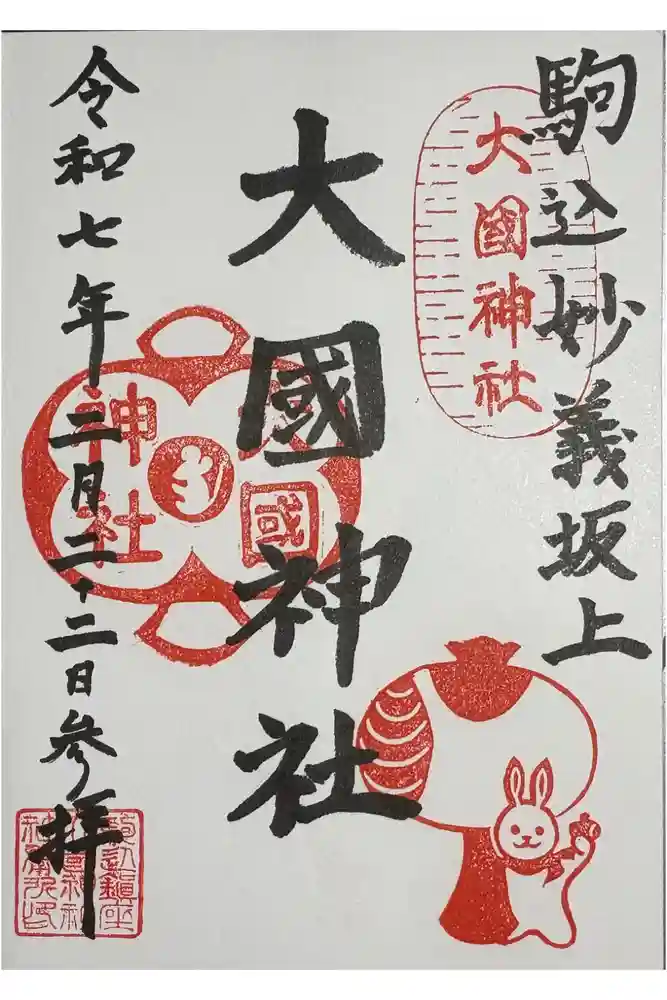 駒込妙義坂上
大國神社
大國神社
大國神社
令和七年二月二十二日参拝